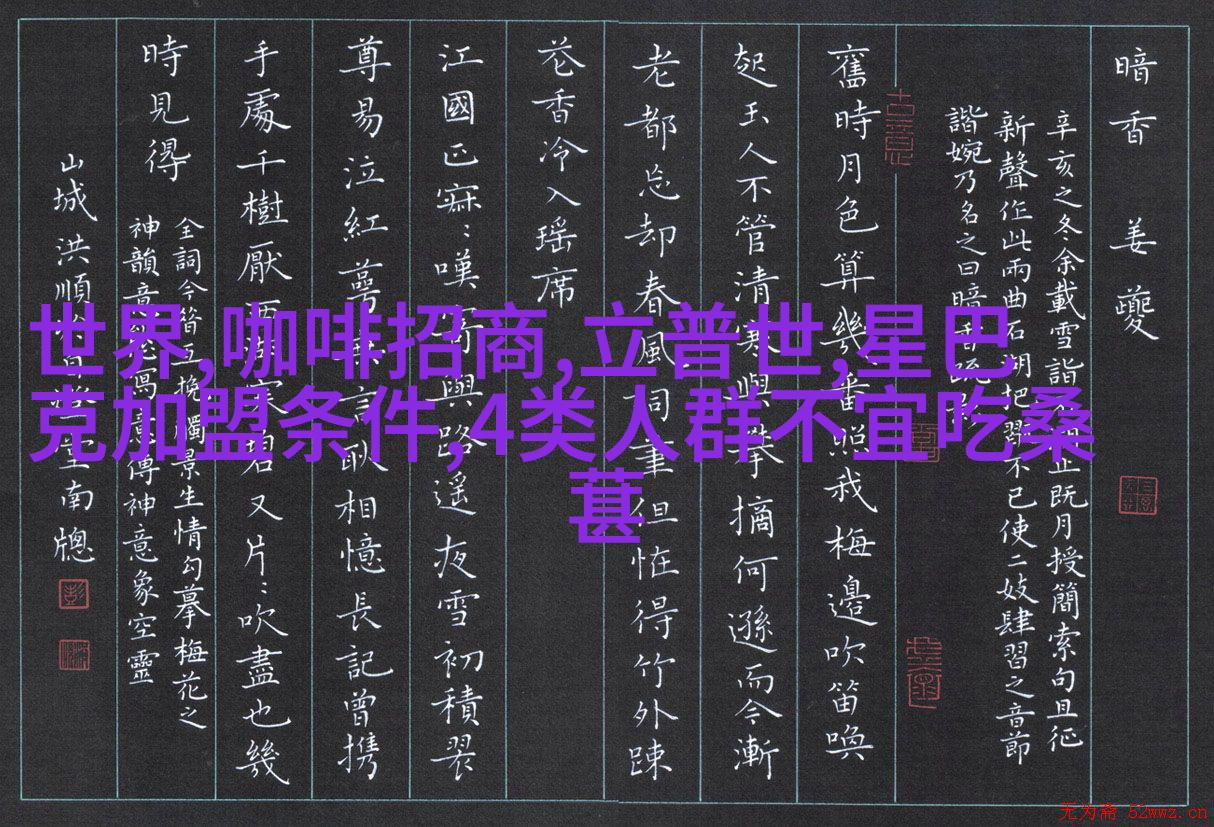 暗香 姜夔
辛亥之冬余載雪詣
止既月授簡索句且征
新聲作此兩曲石湖把
不已使二妓肆習之音節
諧婉乃名之曰暗香疏
舊時月色算幾番照我梅邊吹笛喚
起玉人不管清寒與攀摘何遜而今漸
老都忘却春風詞筆但恠得竹外踈
花香冷入瑶席
江國正寂〻嘆寄與路遥夜雪初積翠
尊易泣紅萼無言耿相憶長記曾携
手處千樹壓西湖寒碧又片〻吹盡也幾
時見得
全詞今昔互挽
景生情勾摹梅花之
神韻
傳神意象空靈
山城洪順
南牕
世界,咖啡招商,立普世,星巴
克加盟条件,4类人群不宜吃桑
葚
无为斋 52wwz.cn